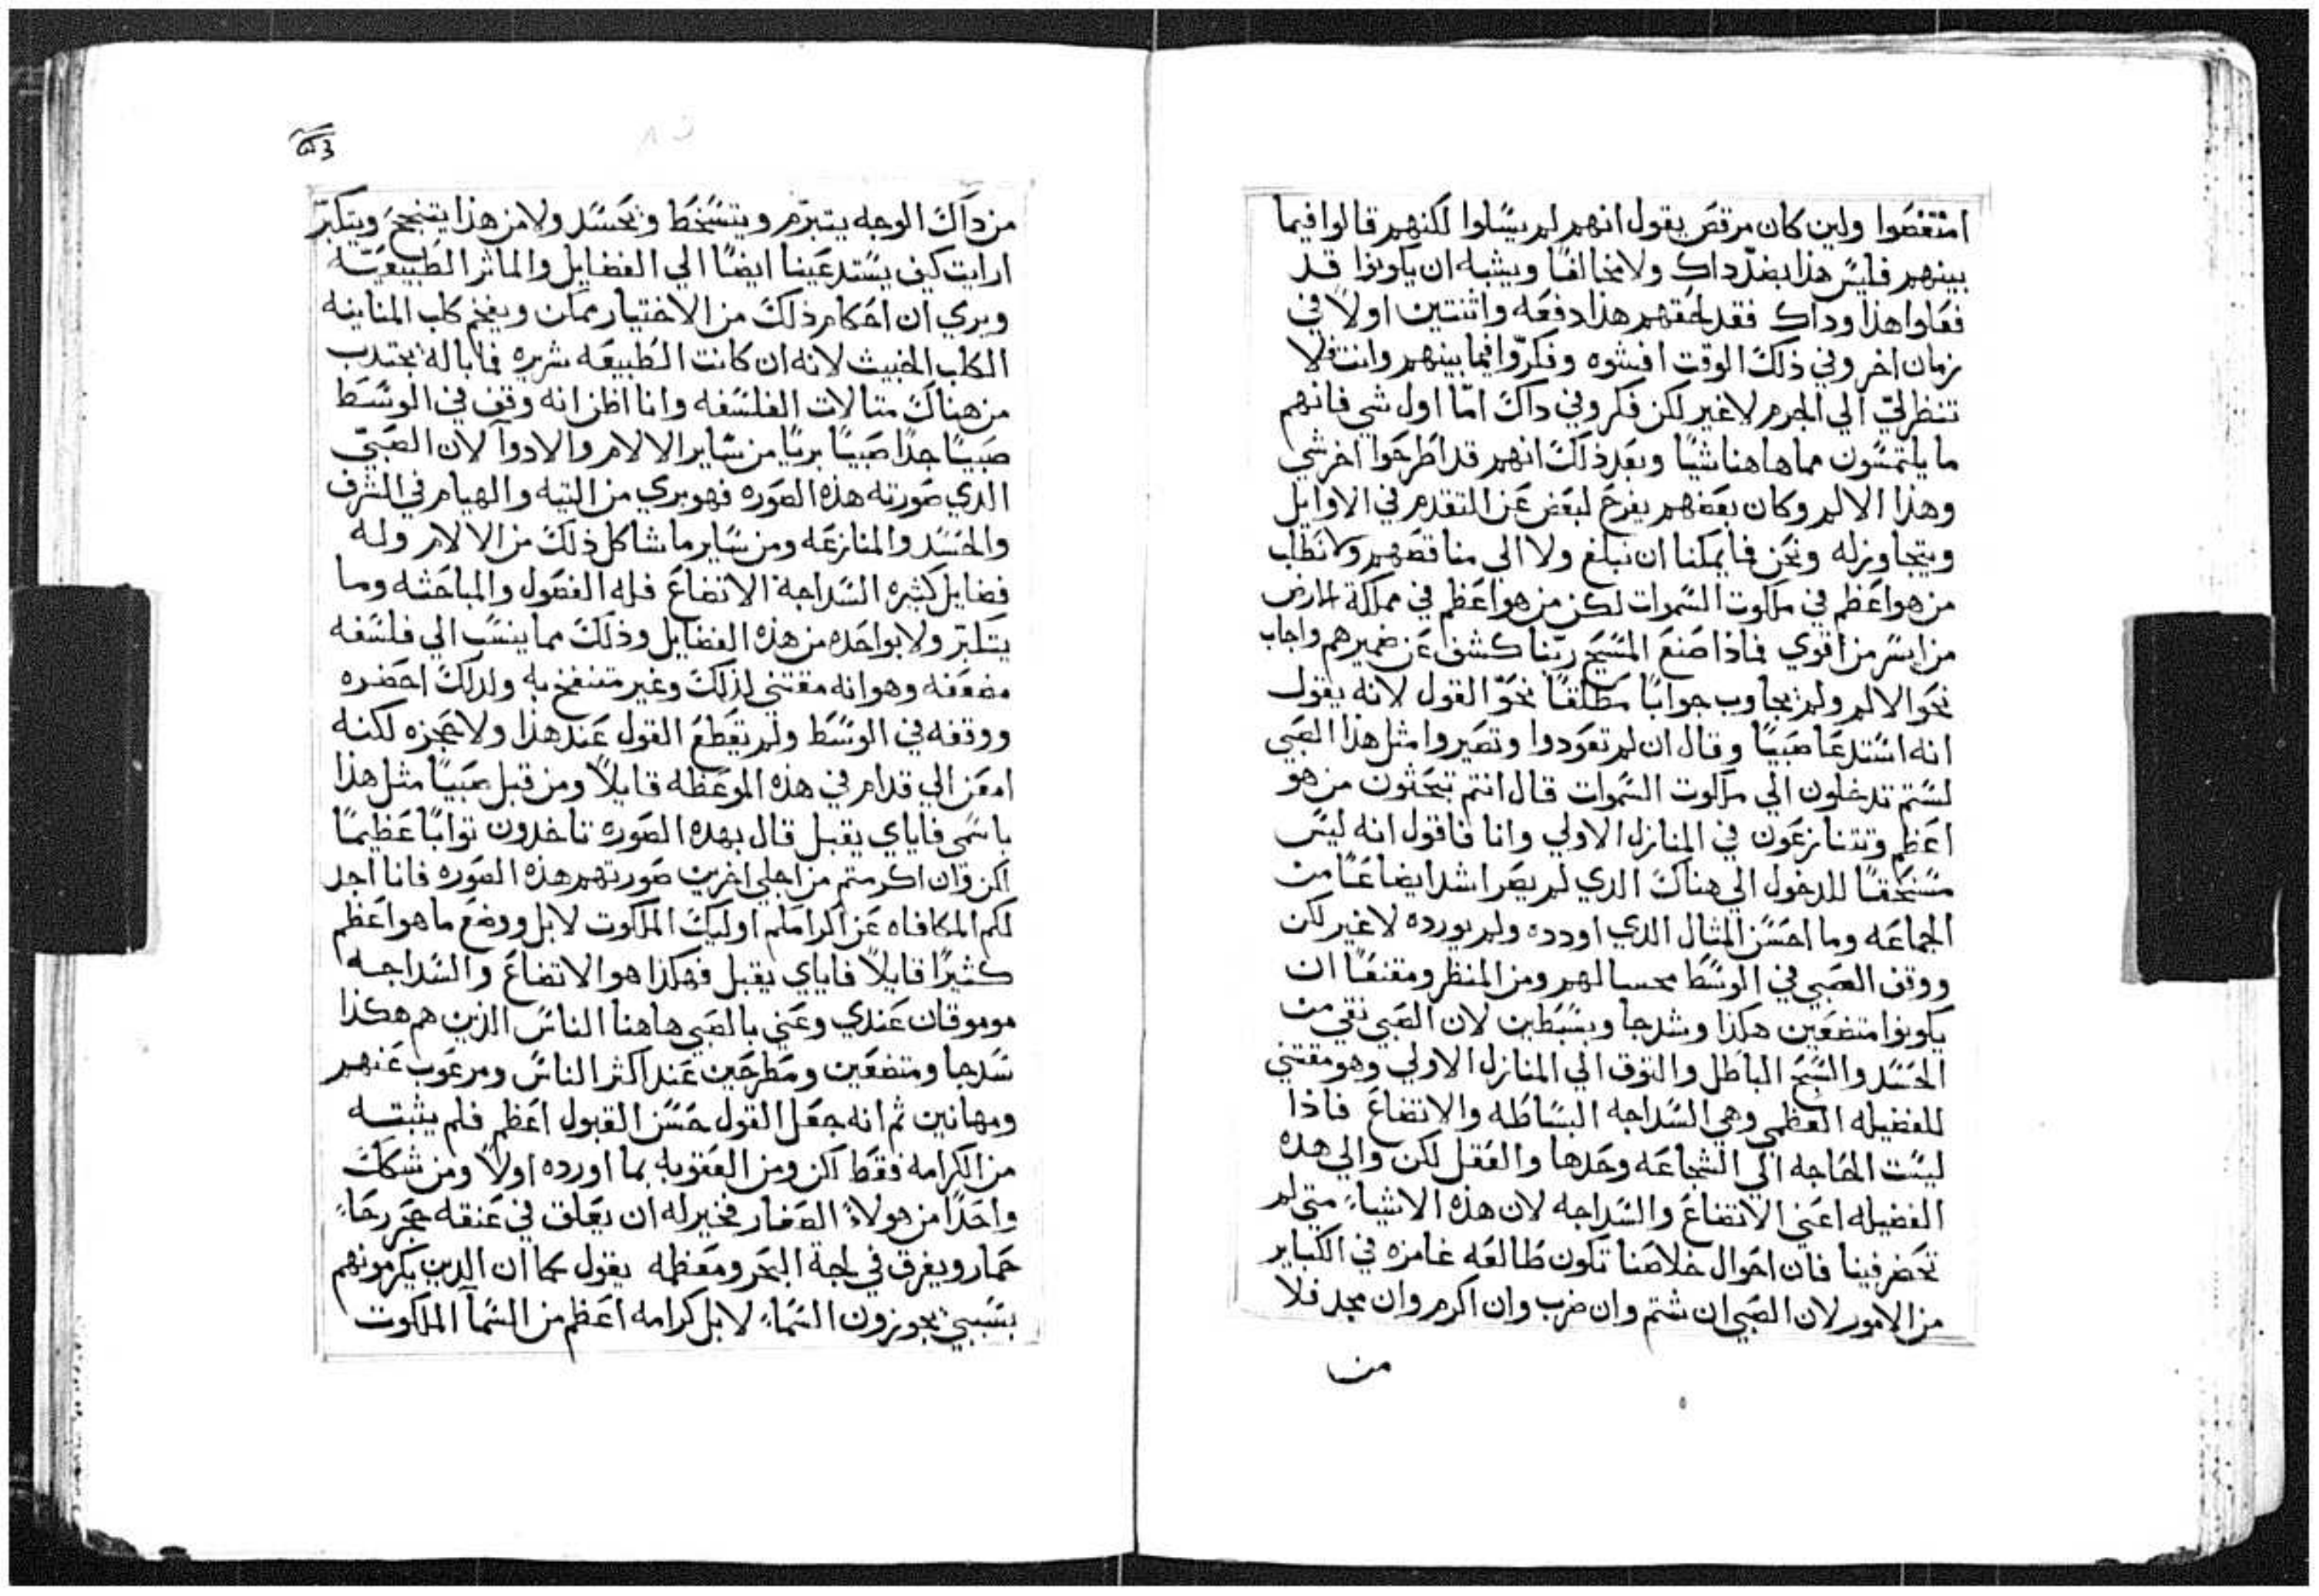 امتعضوا ولين كان مرقص يقول انهم لم يسالوا لكنهم قالوا فيما
بينهم فليس هذا بضد داك ولا مخالفا ويشبه ان يكونوا قد
فعلوا هذا وداك فقد لحقهم هذا دفعه واثنتين اولا في
زمان اخر وفي ذلك الوقت افشوه وفكروا فيما بينهم وانت فلا
تنظر لي الي الجرم لاغير لكن فكر وفي داك اما اول شي فانهم
ما يلتمسون مما هاهنا شيا وبعد ذلك انهم قد اطرحوا اخر شي
وهذا الالم وكان بعضهم يفرج لبعض عن التقدم في الاوايل
ويتجاوز له ونحن فما يمكنا ان نبلغ ولا الى مناقصهم ولا نطلب
من هو اعظم في ملكوت السموات لكن من هو اعظم في مملكة الارض
من ايسر من اقوي فماذا صنع المسيح ربنا كشف عن ضميرهم واجاب
نحو الالم ولم يجاوب جوابا مطلقا نحو القول لانه يقول
انه استدعا صبيا وقال ان لم تعودوا وتصيروا مثل هذا الصبي
لستم تدخلون الي ملكوت السموات قال انتم تبحثون من هو
اعظم وتتنازعون في المنازل الاولي وانا فاقول انه ليس
مستحقا للدخول الي هناك الدي لم يصر اشد ايضاعا من
الجماعه وما احسن المثال الدي اورده ولم يورده لاغير لكن
ووقف الصبي في الوسط محسا لهم ومن المنظر ومقنعا ان
يكونوا متضعين هكذا وسدجا وبسطين لان الصبي نقي من
الحسد والسبح الباطل والتوق الي المنازل الاولي وهو مقتني
للفضيله العظمي وهي السداجه البساطه والاتضاع فاذا
ليست الحاجه الي الشجاعه وحدها والعقل لكن والي هده
الفضيله اعني الاتضاع والسداجه لان هذه الاشياء متي لم
تحضر فينا فان احوال خلاصنا تكون طالعه غامزه في الكباير
من الامور لان الصبي ان شتم وان ضرب وان اكرم وان مجد فلا
من
من داك الوجه يتبرم ويتسخط ويحسد ولا من هذا يتبجح ويتكبر
ارايت كيف يستدعينا ايضا الي الفضايل والماثر الطبيعيه
ويري ان احكام ذلك من الاختيار ممكن ويفخم كلب المناينه
الكلب الخبيث لانه ان كانت الطبيعه شريره فما باله يجتدب
من هناك مثالات الفلسفه وانا اظن انه وقف في الوسط
صبيا جدا صبيا بريا من ساير الالام والادوآ لان الصبي
الدي صورته هذه الصوره فهو بري من التيه والهيام في الشرف
والحسد والمنازعه ومن ساير ما شاكل ذلك من الالام وله
فضايل كثيره السداجة الاتضاع فله الفصول والمباحثه وما
يتكبر ولا بواحده من هذه الفضايل وذلك مما ينسب الي فلسفه
مضعفه وهو انه مقتني لذلك وغير متنفخ به ولدلك احضره
ووقفه في الوسط ولم يقطع القول عند هذا ولا عجزه لكنه
امعن الي قدام في هذه الموعظه قايلا ومن قبل صبيا مثل هذا
باسمي فاياي يقبل قال بهده الصوره تاخدون توابا عظيما
لكن وان اكرمتم من اجلي اخرين صورتهم هذه الصوره فانا اجد
لكم المكافاه عن اكرامكم اوليك الملكوت لا بل ووضع ما هو اعظم
كثيرا قايلا فاياي يقبل فهكذا هو الاتضاع والسداجه
موموقان عندي وعني بالصبي هاهنا الناس الذين هم هكذا
سدجا ومتضعين ومطرحين عند اكثر الناس ومرغوب عنهم
ومهانين ثم انه جعل القول حسن القبول اعظم فلم يثبته
من الكرامه فقط لكن ومن العقوبه بما اورده اولا ومن شكك
واحدا من هولاء الصغار فخير له ان يعلق في عنقه حجر رحاء
حمار ويغرق في لجة البحر ومعظمه يقول كما ان الدين يكرمونهم
بسببي يحوزون السماء لا بل كرامه اعظم من السمآ الملكوت